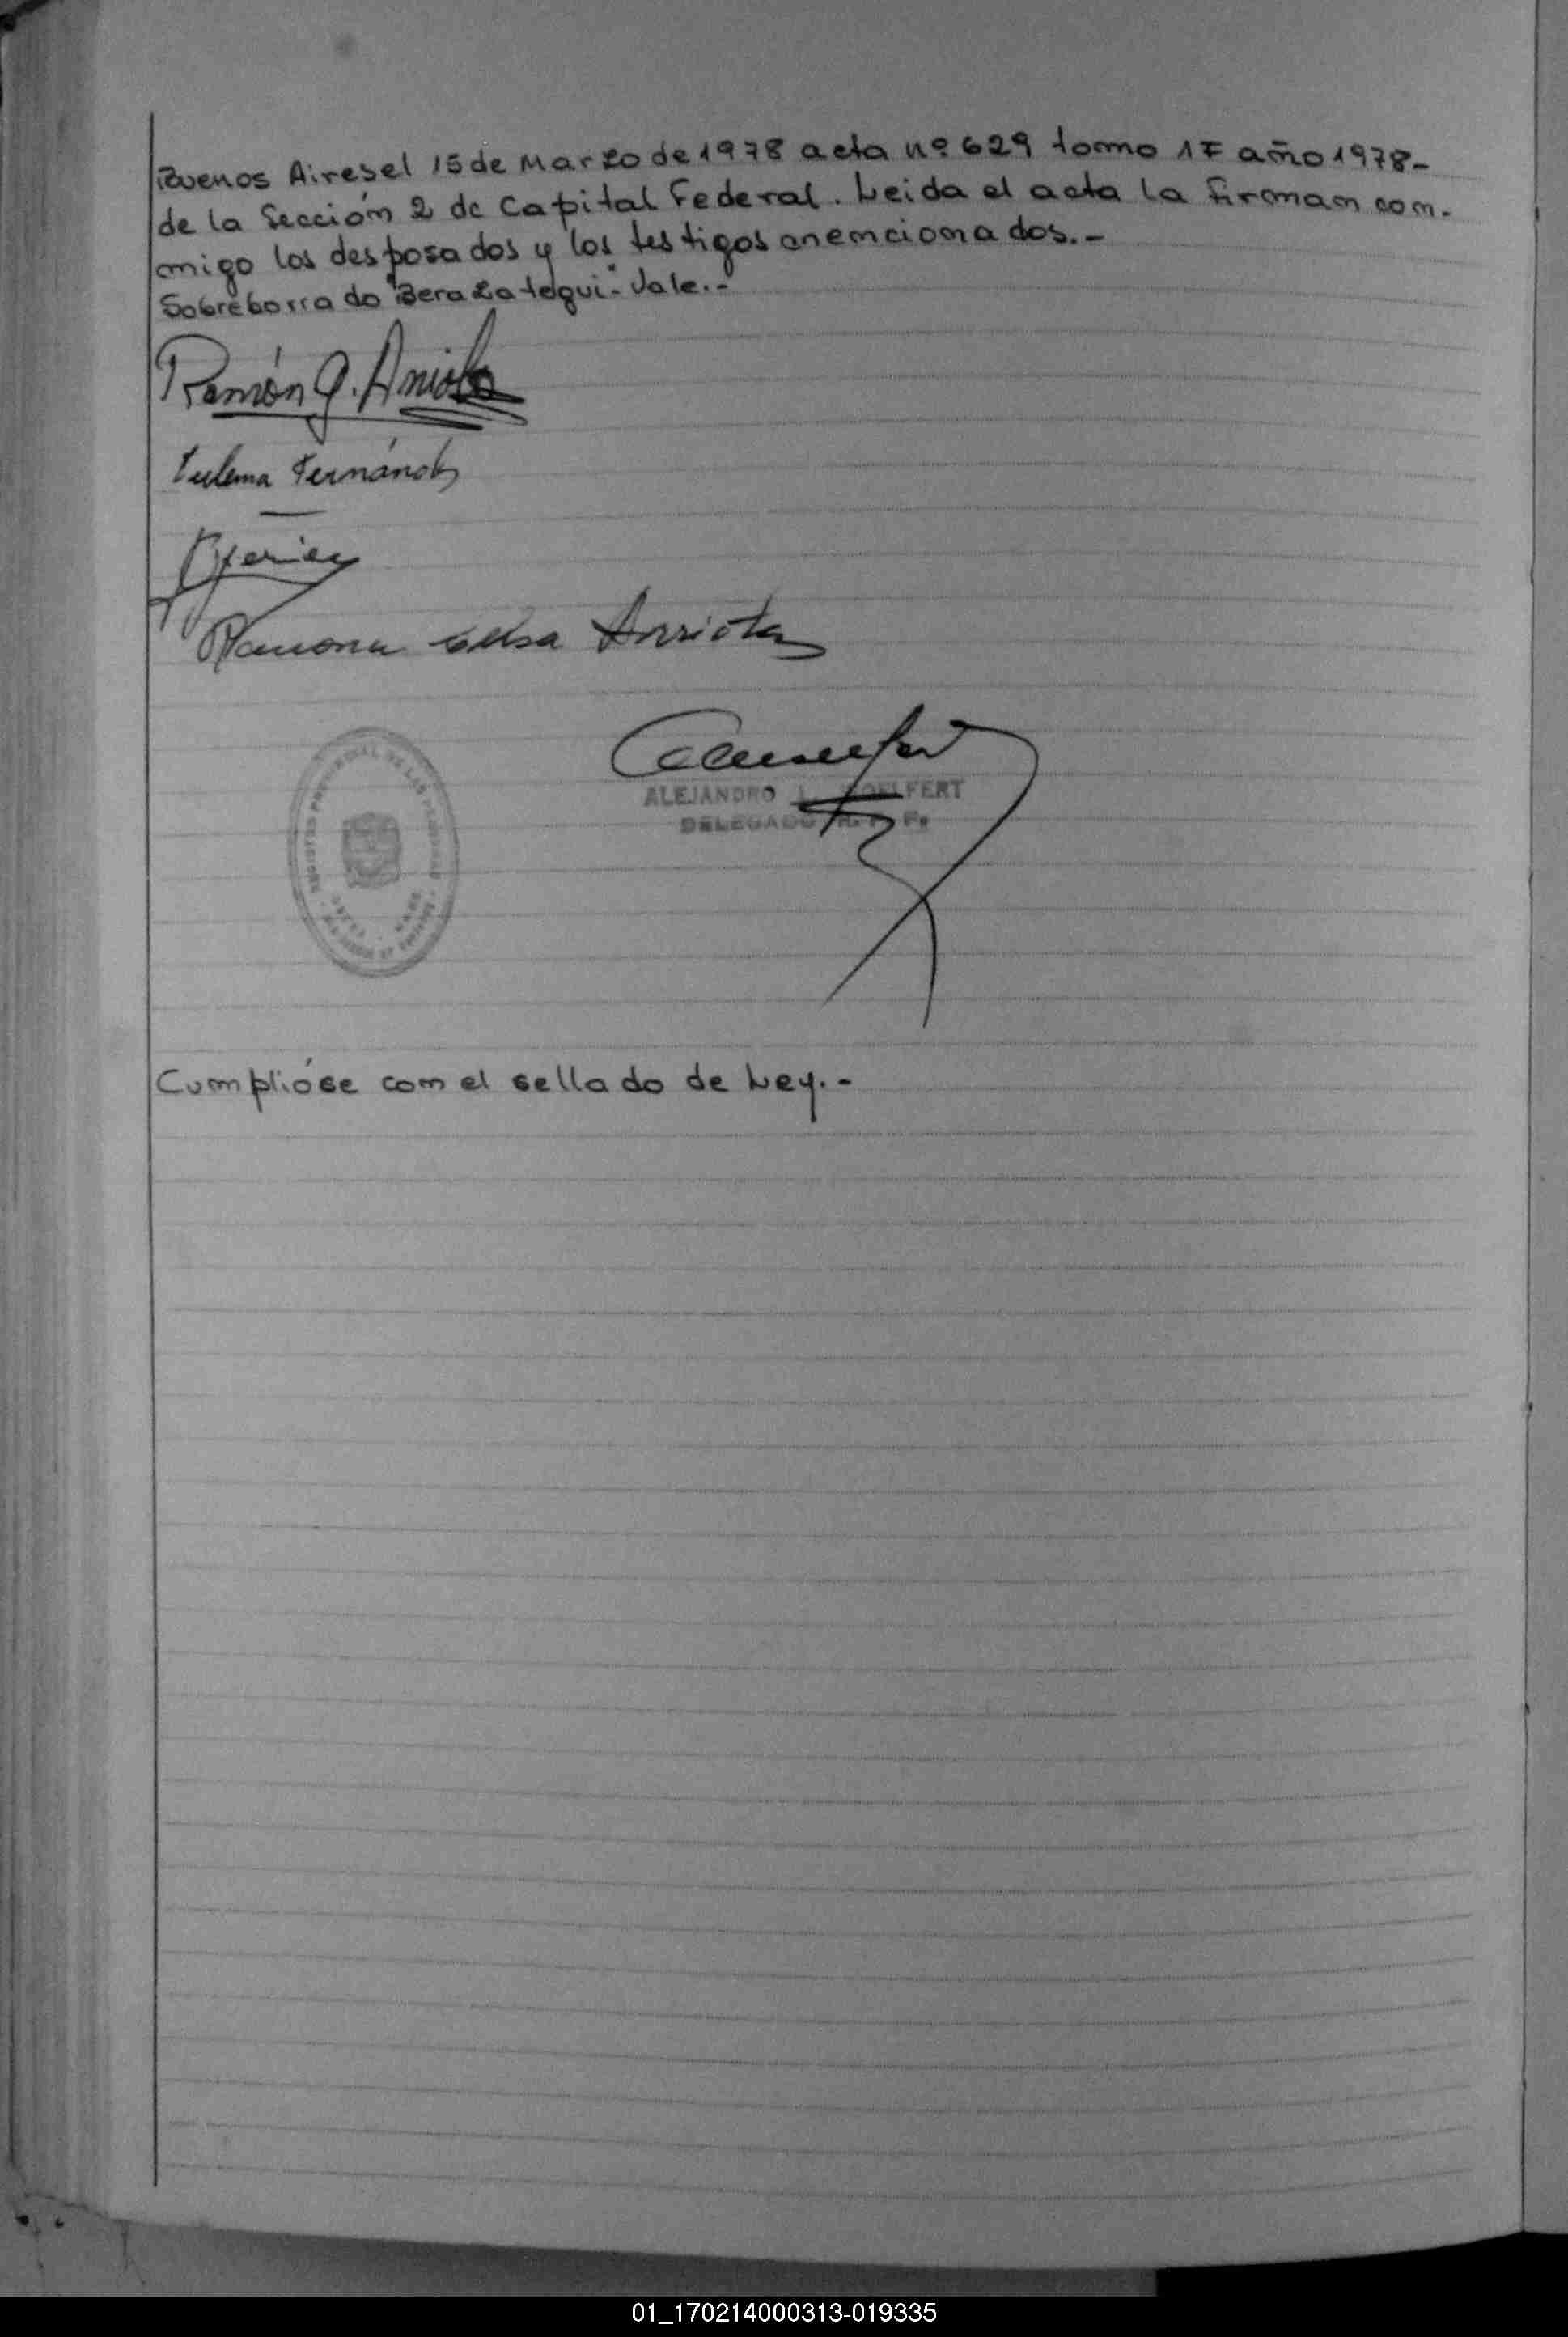 Buenos Aires el 15 de Marzo de 1978 acta nº 629 tomo 1F año 1978-
de la Sección 2 de Capital Federal. Leida el acta la firman con-
migo los desposados y los testigos mencionados.-
Sobreborrado "Berazategui". Vale.-
Ramón
Fernández
Ramona Elsa Arriola
ALEJANDRO L.
DELEGADO R. P.
Cumplióse con el sellado de Ley.-
01_170214000313-019335